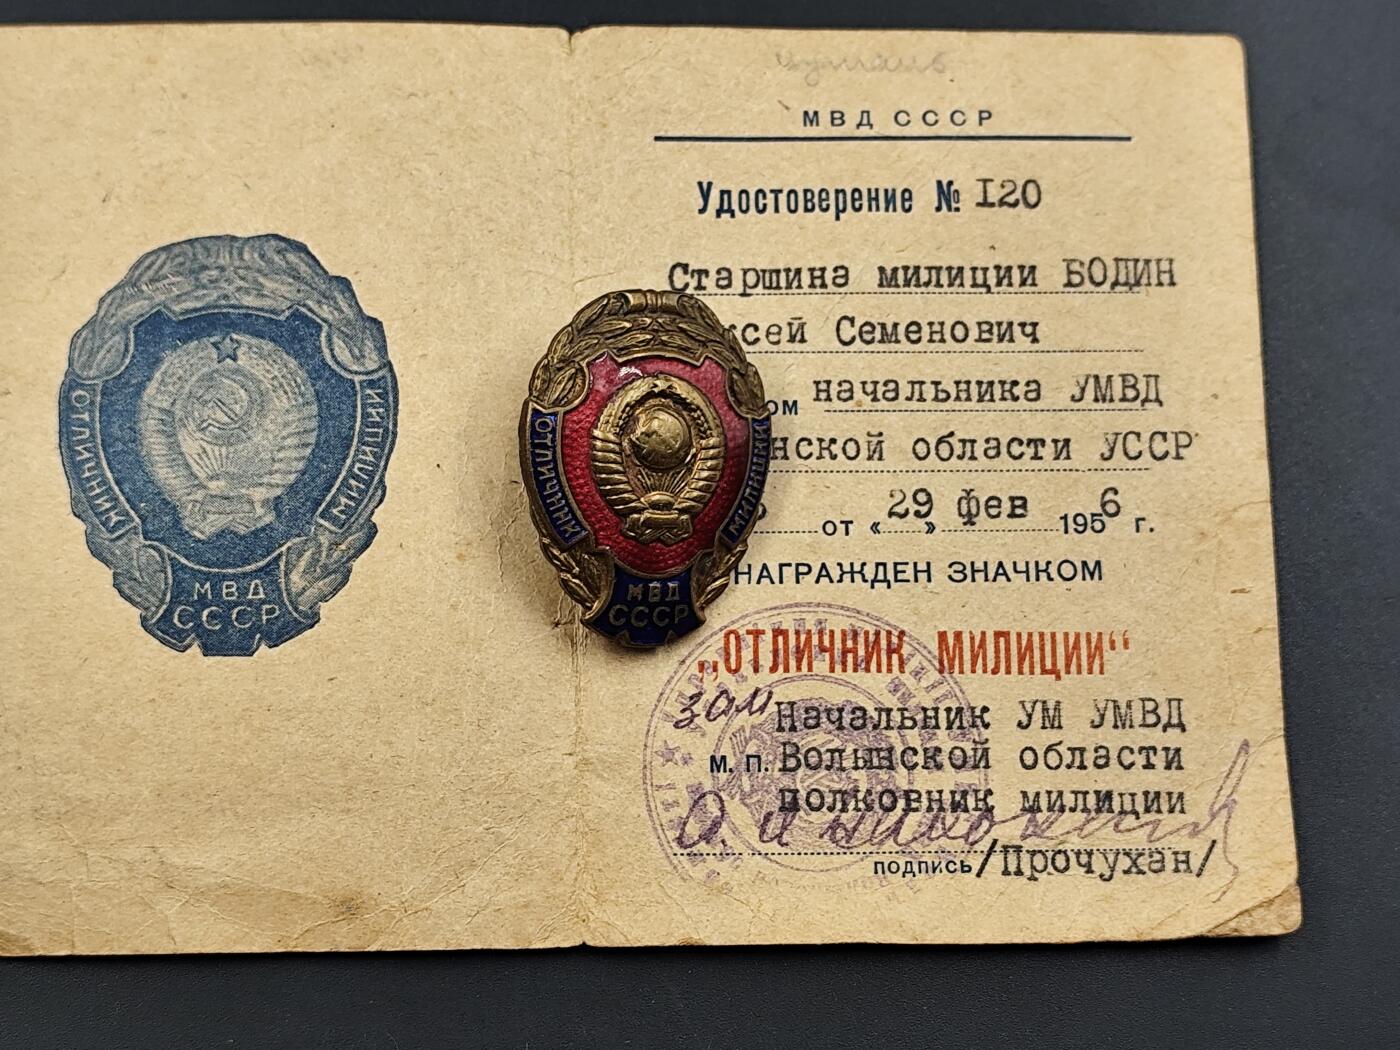 МВД СССР
Удостоверение № I20
Старшина милиции БОДИН
ксей Семенович
ом начальника УМВД
нской области УССР
от « 29 » фев 1956 г.
НАГРАЖДЕН ЗНАЧКОМ
„ОТЛИЧНИК МИЛИЦИИ“
зам Начальник УМ УМВД
м. п. Волынской области
полковник милиции
подпись /Прочухан/
ОТЛИЧНИК
МИЛИЦИИ
МВД
СССР
ОТЛИЧНИК
МИЛИЦИИ
МВД
СССР